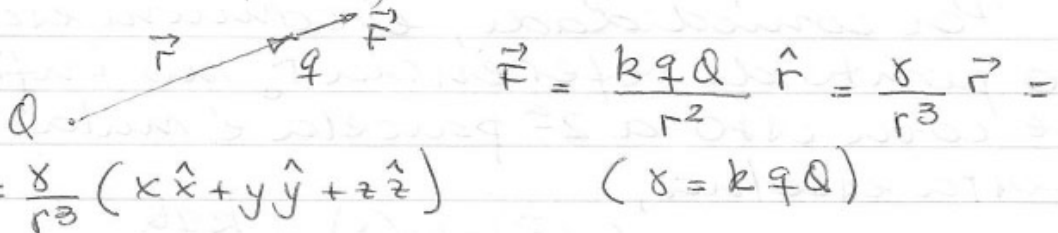 r⃗ q F⃗
Q
F⃗ = kqQ/r² r̂ = γ/r³ r⃗ =
= γ/r³ (x x̂ + y ŷ + z ẑ) (γ = kqQ)